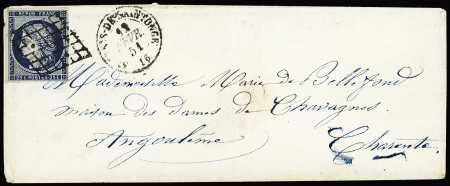 REPUB. FRANC.
25 C POSTES 25 C
DE
12
FEVR
51
16
Mademoiselle Marie de Bellefond
maison des Dames de Chavagnes
Angoulême
Charente